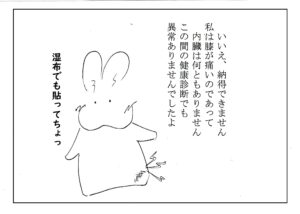 いいえ、納得できません
私は膝が痛いのであって
内臓は何ともありません
この間の健康診断でも
異常ありませんでしたよ
湿布でも貼ってちょっ